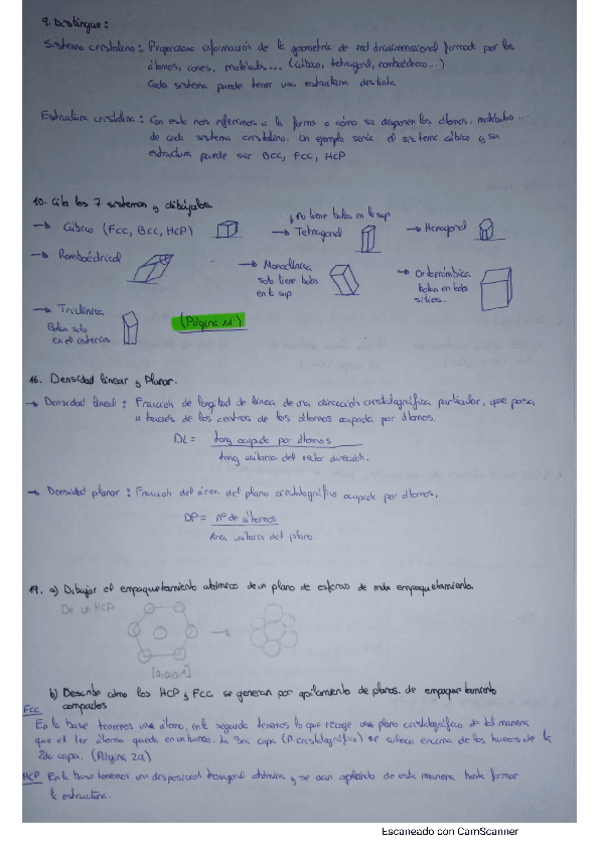 9. Distingue:
Sistema cristalino: Proporciona información de la geometría de red tridimensional formada por los
átomos, iones, moléculas... (Cúbico, tetragonal, romboédrico...)
Cada sistema puede tener una estructura distinta
Estructura cristalina: Con esto nos referimos a la forma o cómo se disponen los átomos, moléculas...
de cada sistema cristalino. Un ejemplo sería el sistema cúbico y su
estructura puede ser BCC, FCC, HCP
10. Cita los 7 sistemas y dibújalos.
→ Cúbico (FCC, BCC, HCP)
↓ no tiene bolas en la sup
→ Tetragonal
→ Hexagonal
→ Romboédrical
→ Monoclínica
solo tiene bolas
en la sup
→ Ortorrómbica
bolas en todos
sitios.
→ Triclínica
Bolas solo
en el exterior
(Página 11)
16. Densidad linear y Planar.
→ Densidad lineal: Fracción de longitud de línea de una dirección cristalográfica particular, que pasa
a través de los centros de los átomos ocupada por átomos.
DL = long ocupada por átomos
long unitaria del vector dirección.
→ Densidad planar: Fracción del área del plano cristalográfico ocupada por átomos.
DP = nº de átomos
Área unitaria del plano
19. a) Dibujar el empaquetamiento atómico de un plano de esferas de más empaquetamiento.
De un HCP
[0,0,0,1]
b) Describe cómo los HCP y FCC se generan por apilamiento de planos de empaquetamiento
compactos
FCC
En la base tenemos un átomo, en la segunda tenemos lo que recoge un plano cristalográfico de tal manera
que el 1er átomo queda en un hueco. La 3era capa (P. cristalográfico) se coloca encima de los huecos de la
2da capa. (Página 2a)
HCP En la base tenemos una disposición hexagonal atómica y se van apilando de esta manera hasta formar
la estructura.
Escaneado con CamScanner